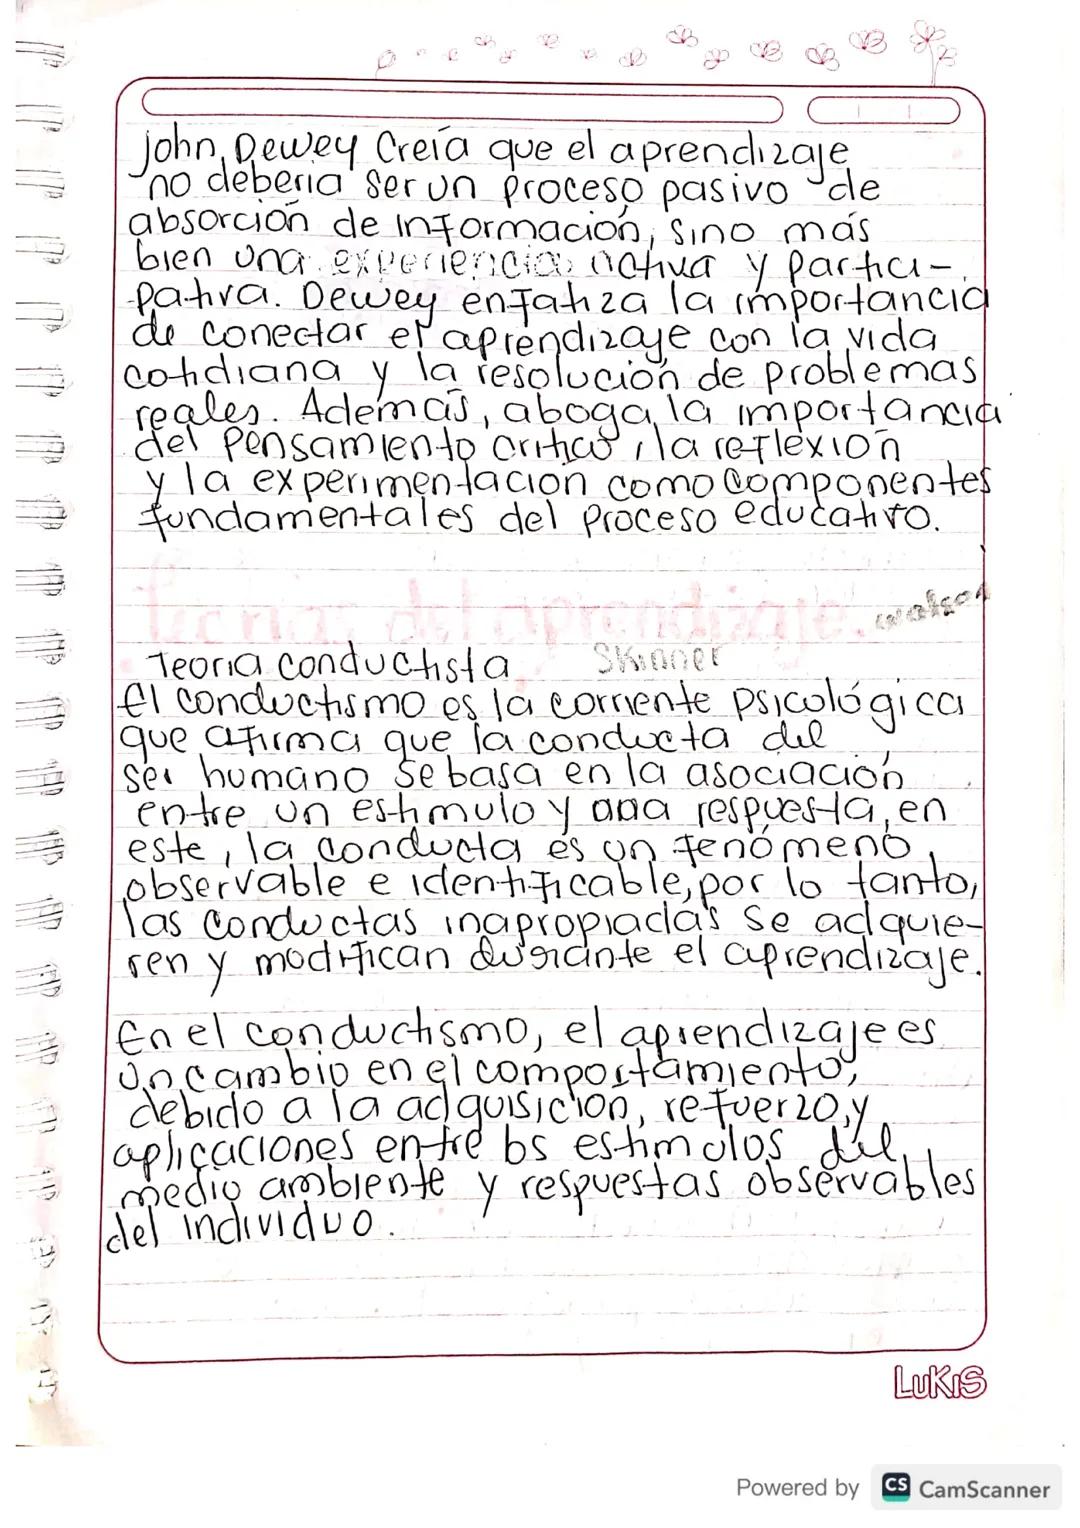 John Dewey Creía que el aprendizaje
no deberia ser un proceso pasivo de
absorción de información, sino más
bien una experiencia activa y partici-
pativa. Dewey enfatiza la importancia
de conectar el aprendizaje con la vida
cotidiana y la resolución de problemas
reales. Además, aboga la importancia
del pensamiento critico, la reflexión
y la experimentación como componentes
fundamentales del proceso educativo.
Teorias del aprendizaje.
watson
Teoria conductista Skinner
El conductismo es la corriente psicológica
que afirma que la conducta del
ser humano se basa en la asociación
entre un estimulo y una respuesta, en
este, la conducta es un fenómeno
observable e identificable, por lo tanto,
las conductas inapropiadas se adquie-
ren y modifican durante el aprendizaje.
En el conductismo, el aprendizaje es
un cambio en el comportamiento,
debido a la adquisición, refuerzo, y
aplicaciones entre los estimulos del
medio ambiente y respuestas observables
del individuo.
LUKIS
Powered by CS CamScanner